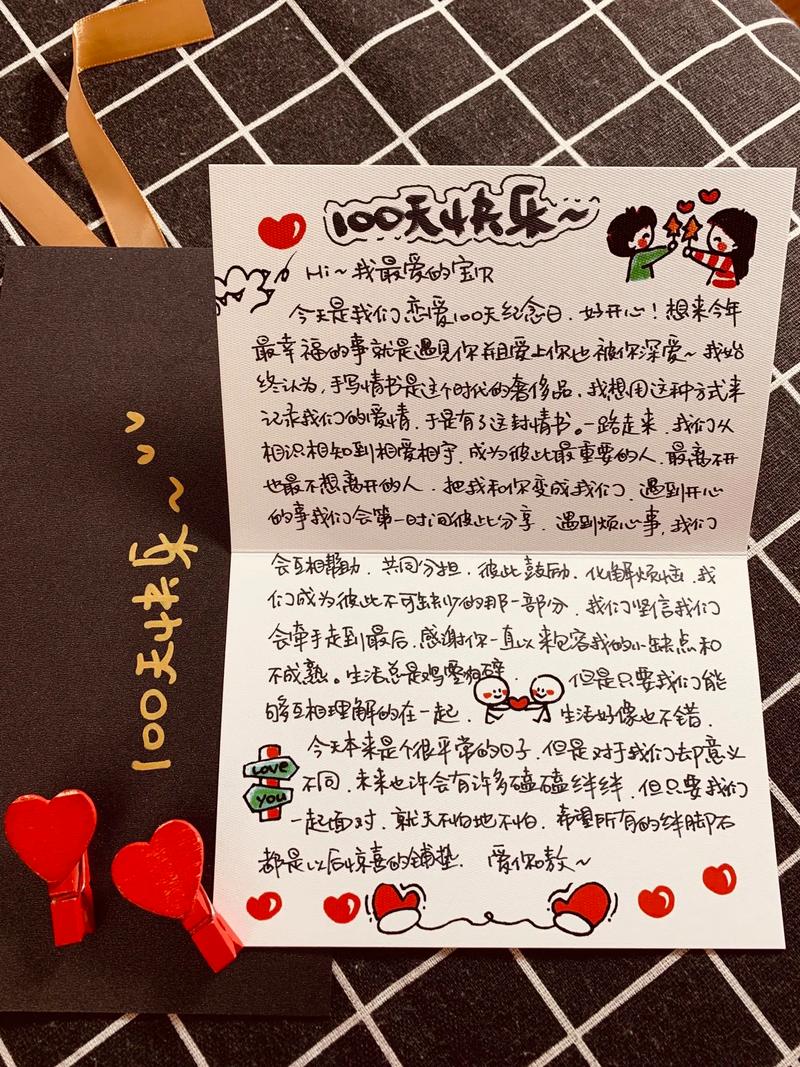 100天快乐~
Hi~我最爱的宝贝
今天是我们恋爱100天纪念日，好开心！想来今年
最幸福的事就是遇見你并且爱上你也被你深爱~我始
终认为，手写情书是这个时代的奢侈品，我想用这种方式来
记录我们的爱情，于是有了这封情书。一路走来，我们从
相识相知到相爱相守，成为彼此最重要的人，最离不开
也最不想离开的人，把我和你变成我们，遇到开心
的事我们会第一时间彼此分享，遇到烦心事，我们
会互相帮助，共同分担，彼此鼓励，化解烦恼，我
们成为彼此不可缺少的那一部分，我们坚信我们
会牵手走到最后，感谢你一直以来包容我的小缺点和
不成熟。生活总是鸡零狗碎，但是只要我们能
够互相理解的在一起，生活好像也不错，
今天本来是个很平常的日子，但是对于我们却意义
不同，未来也许会有许多磕磕绊绊，但只要我们
一起面对，就天不怕地不怕，希望所有的绊脚石
都是以后惊喜的铺垫，爱你嗷~
Love
you
100天快乐~